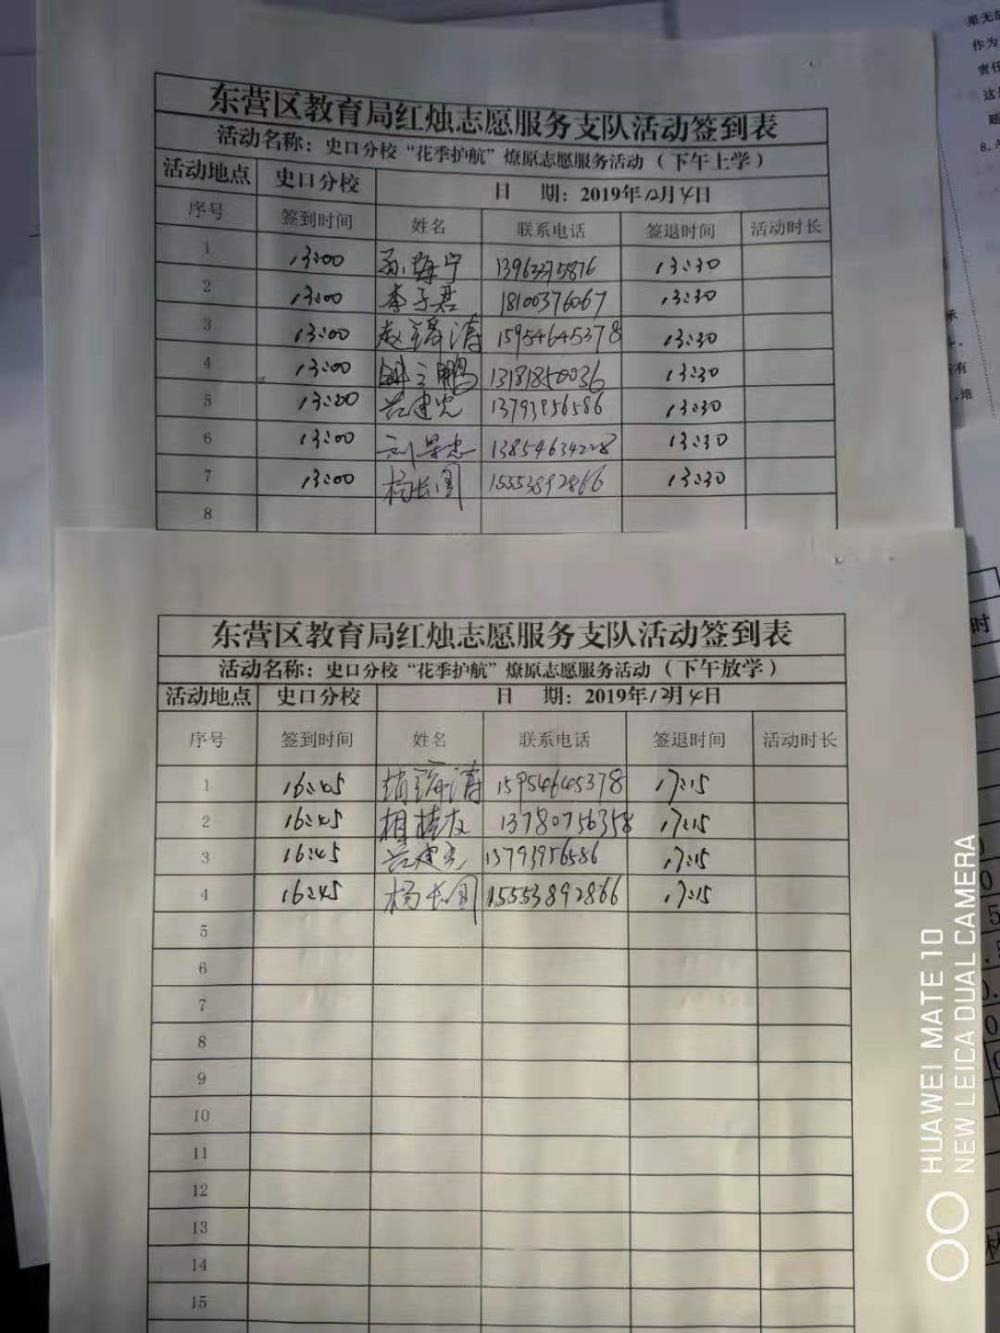 东营区教育局红烛志愿服务支队活动签到表
活动名称：史口分校“花季护航”燎原志愿服务活动（下午上学）
活动地点 史口分校 日 期：2019年12月4日
序号 签到时间 姓名 联系电话 签退时间 活动时长
1 13:00 13963375876 13:30
2 13:00 李子君 18100376067 13:30
3 13:00 15954645378 13:30
4 13:00 13181850036 13:30
5 13:00 13793956586 13:30
6 13:00 刘景忠 13854634228 13:30
7 13:00 杨长国 15553892866 13:30
8
东营区教育局红烛志愿服务支队活动签到表
活动名称：史口分校“花季护航”燎原志愿服务活动（下午放学）
活动地点 史口分校 日 期：2019年12月4日
序号 签到时间 姓名 联系电话 签退时间 活动时长
1 16:45 15954645378 17:15
2 16:45 相桂友 13780756358 17:15
3 16:45 13793956586 17:15
4 16:45 杨长国 15553892866 17:15
5
6
7
8
9
10
11
12
13
14
15
HUAWEI MATE 10
NEW LEICA DUAL CAMERA